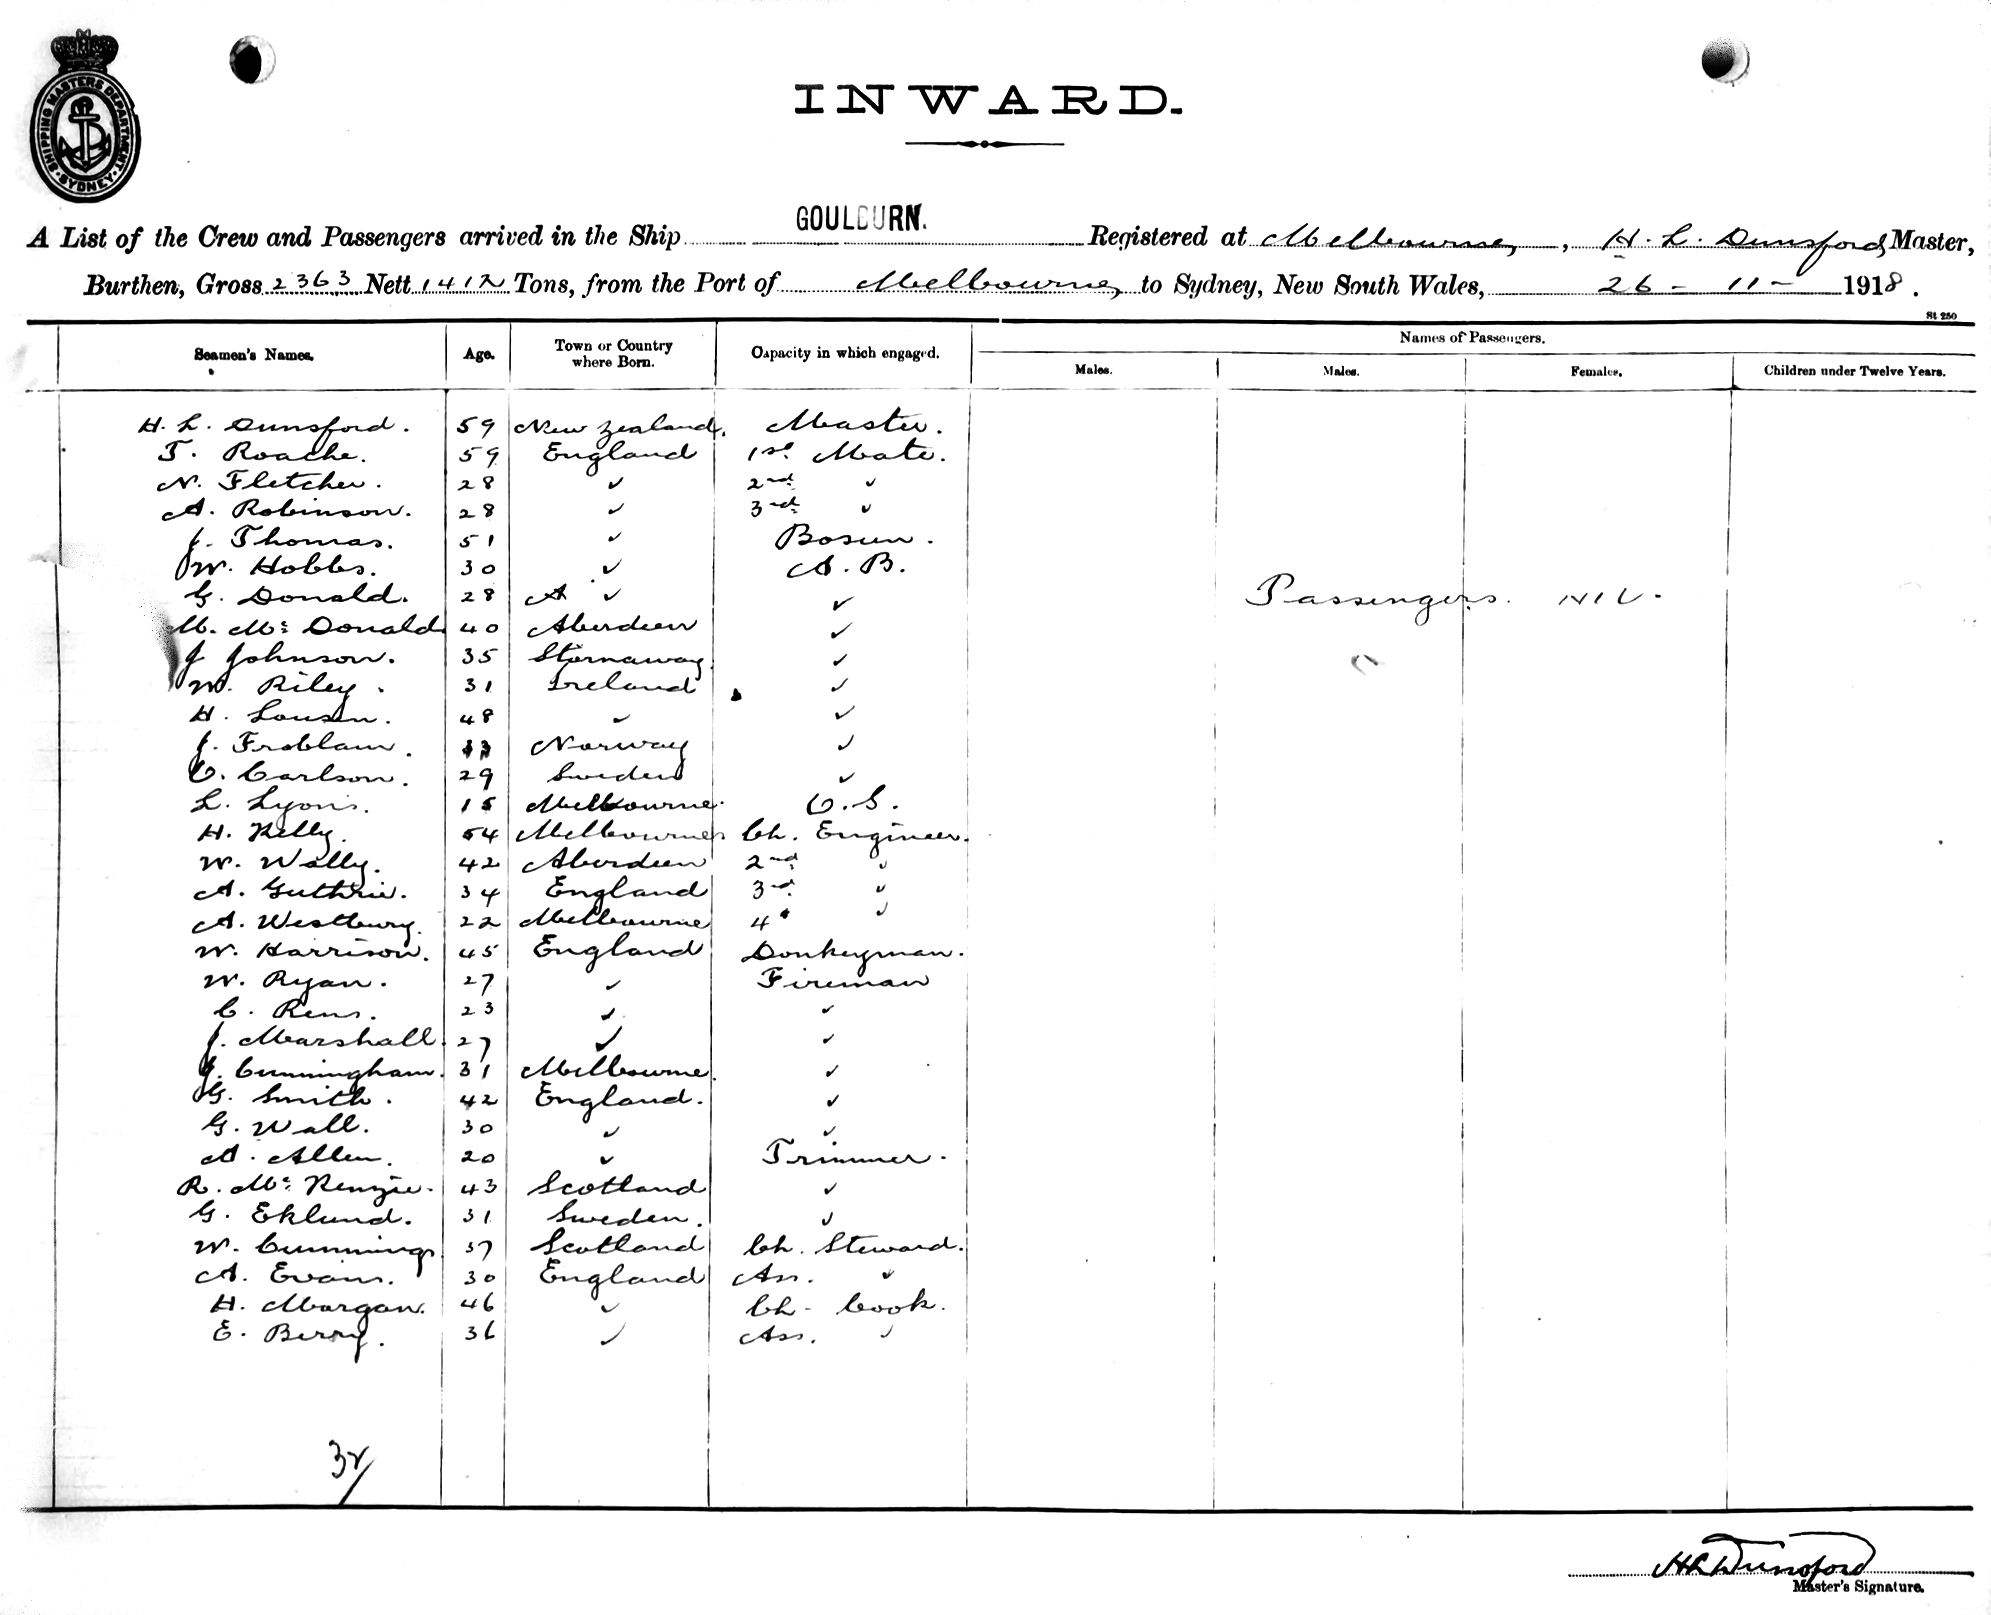 SHIPPING MASTERS DEPARTMENT · SYDNEY ·
INWARD.
A List of the Crew and Passengers arrived in the Ship GOULBURN. Registered at Melbourne, H. L. Dunsford, Master,
Burthen, Gross 2363 Nett 1412 Tons, from the Port of Melbourne, to Sydney, New South Wales, 26 - 11 - 1918.
St 250
Seamen's Names. Age. Town or Country where Born. Capacity in which engaged. Names of Passengers.
Males. Males. Females. Children under Twelve Years.
H. L. Dunsford. 59 New Zealand. Master.
T. Roache. 59 England 1st Mate.
N. Fletcher. 28 " 2nd "
A. Robinson. 28 " 3rd "
J. Thomas. 51 " Bosun.
W. Hobbs. 30 " A. B.
G. Donald. 28 A " "
Passengers. NIL.
M. Mc Donald 40 Aberdeen "
J Johnson. 35 Stornaway. "
W. Riley. 31 Ireland "
H. 48 " "
J. Froblam. Norway "
C. Carlson. 29 Sweden "
L. Lyons. 15 Melbourne. O.S.
H. Kelly. 54 Melbourne Ch. Engineer.
W. Wally. 42 Aberdeen 2nd "
A. Guthrie. 34 England 3rd "
A. Westbury. 22 Melbourne 4 "
W. Harrison. 45 England Donkeyman.
W. Ryan. 27 " Fireman
C. Rens. 23 " "
J. Marshall. 27 " "
J. Cunningham. 31 Melbourne. "
G. Smith. 42 England. "
G. Wall. 30 " "
A. Allen. 20 " Trimmer.
R. Mc Kenzie. 43 Scotland "
G. Eklund. 31 Sweden. "
W. Cummings 37 Scotland Ch. Steward.
A. Evans. 30 England Ass. "
H. Morgan. 46 " Ch. Cook.
E. Berry. 36 " Ass. "
32/
H L Dunsford
Master's Signature.